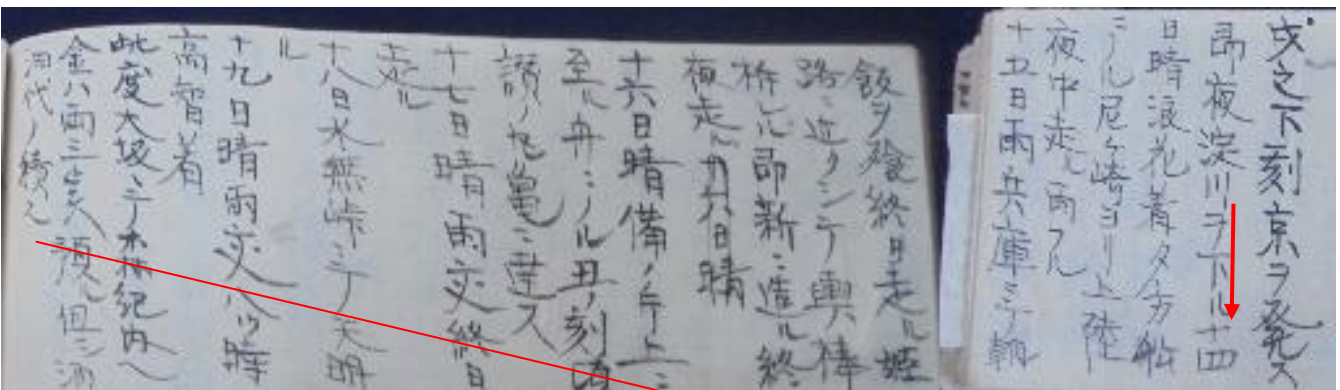 戌之下刻京ヲ発ス
即夜淀川ヲ下ル十四
日晴浪花着夕方船
ニノル尼ヶ崎ヨリ上陸
夜中走ル雨フル
十五日雨兵庫ニテ朝
飯ヲ喰終日走ル姫
路ニ近クシテ輿ノ棒
折ル即新ニ造ル終
夜走ル六日晴
十六日晴備ノ片上ニ
至ル舟ニノル丑ノ刻
讃ノ丸亀ニ達ス
十七日晴雨交終日
走ル
十八日水無峠ニテ天明
ル
十九日晴雨交八ツ時
高智着
此度大坂ニテ木紀内ヘ
金八両三預ル但シ
代ノ積